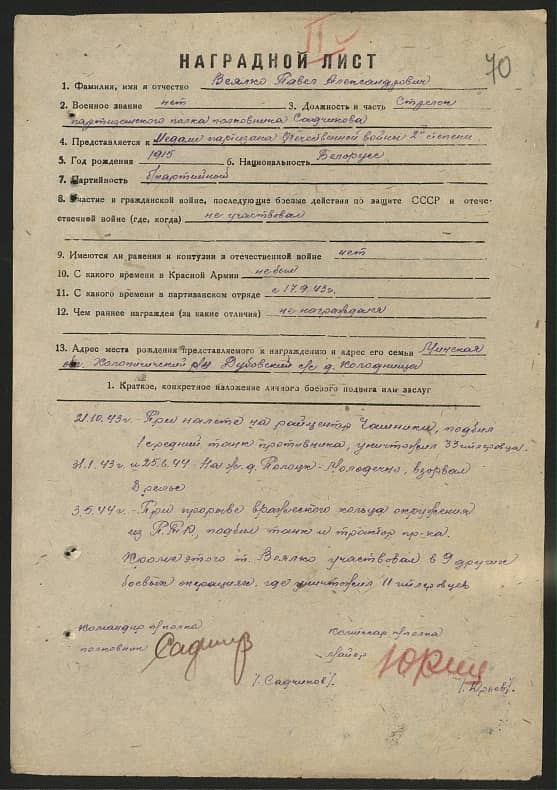 II
70
НАГРАДНОЙ ЛИСТ
1. Фамилия, имя и отчество Веялко Павел Александрович
2. Военное звание нет 3. Должность и часть Стрелок
партизанского полка полковника Садчикова
4. Представляется к Медали партизана Отечественной войны 2й степени
5. Год рождения 1915 6. Национальность Белорус
7. Партийность б/партийный
8. Участие в гражданской войне, последующие боевые действия по защите СССР и отече-
ственной войне (где, когда) не участвовал
9. Имеются ли ранения и контузии в отечественной войне нет
10. С какого времени в Красной Армии не был
11. С какого времени в партизанском отряде с 17.9.43г.
12. Чем раннее награжден (за какие отличия) не награждался
13. Адрес места рождения представляемого к награждению и адрес его семьи Минская
обл. Холопиничский р/н Дубовский с/с д. Колодница
1. Краткое, конкретное изложение личного боевого подвига или заслуг
21.10.43г. - При налете на райцентр Чашники, подбил
1 средний танк противника, уничтожил 33 гитлеровца.
31.1.43г. и 25.6.44 - На ж.д. Полоцк-Молодечно, взорвал
рельс
3.5.44г. - При прорыве вражеского кольца окружения
из подбил танк и трактор пр-ка.
Кроме этого т. Веялко участвовал в 9 других
боевых операциях, где уничтожил 11 гитлеровцев
Командир п/полка
полковник Садчиков
/Садчиков/.
Комиссар п/полка
майор
/Юрьев/.